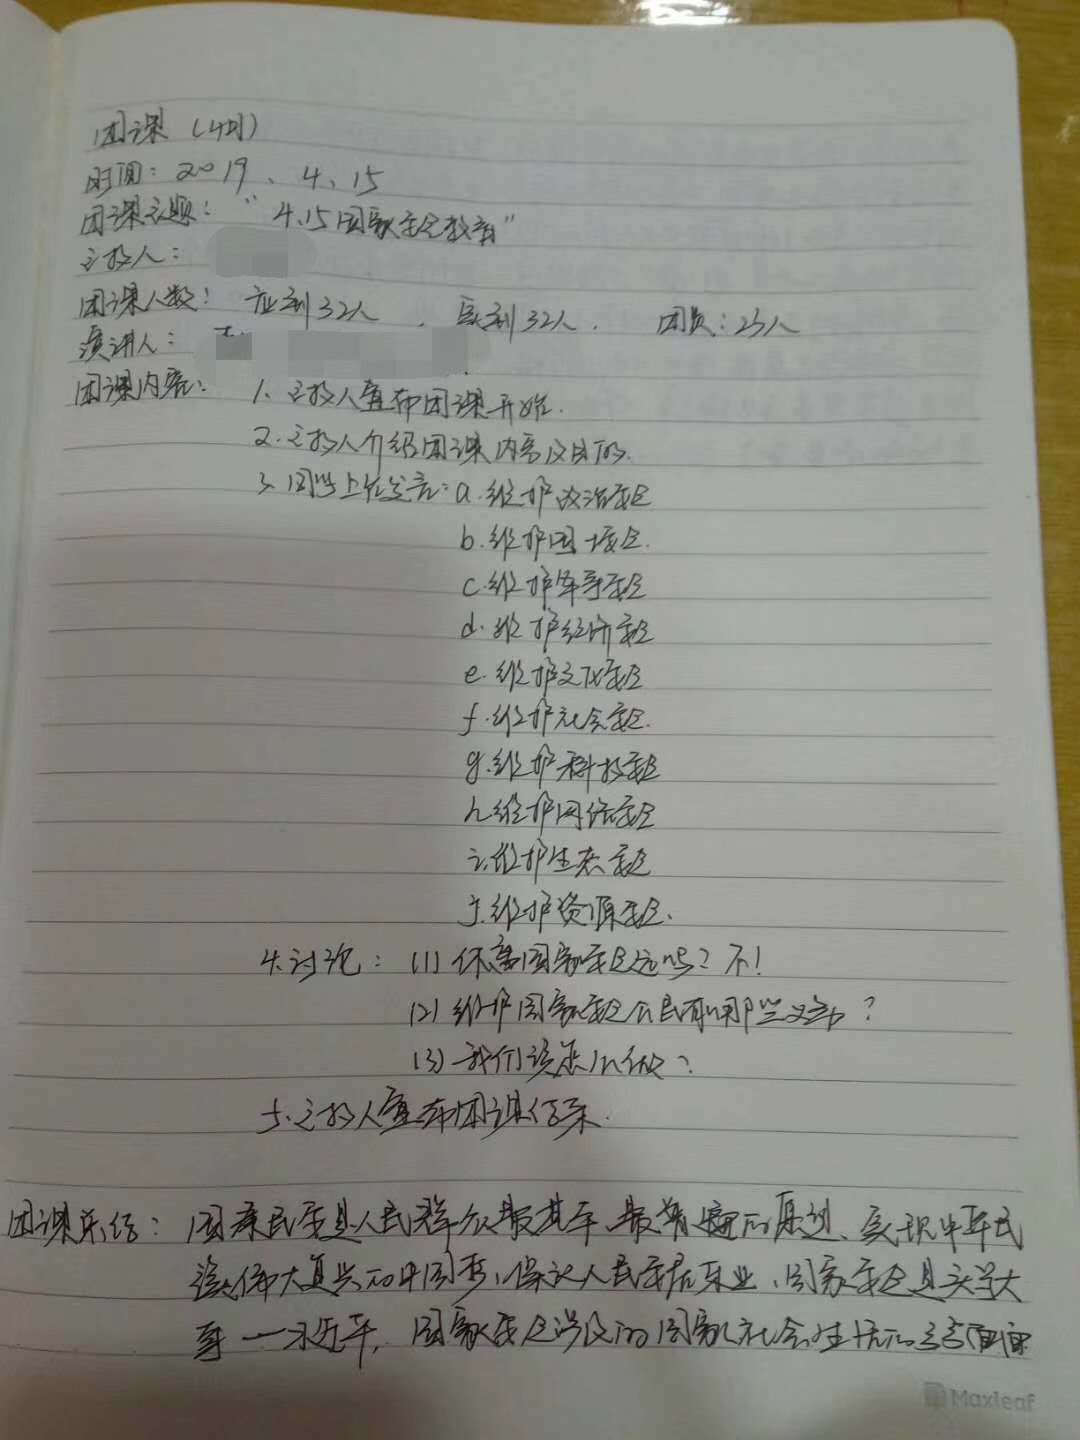 团课（4月）
时间：2019、4、15
团课主题："4.15国家安全教育"
主持人：
团课人数：应到32人，实到32人，团员：23人
演讲人：
团课内容：1、主持人宣布团课开始.
2.主持人介绍团课内容及目的.
3、同学上台发言：a.维护政治安全
b.维护国土安全.
c.维护军事安全
d.维护经济安全
e.维护文化安全
f.维护社会安全.
g.维护科技安全
h.维护网络安全
i.维护生态安全
j.维护资源安全、
4.讨论：(1)你离国家安全远吗？不！
(2)维护国家安全公民有哪些义务？
(3)我们该怎么做？
5、主持人宣布团课结束.
团课总结：国泰民安是人民群众最基本、最普遍的愿望、实现中华民
族伟大复兴的中国梦，保证人民安居乐业，国家安全是头等大
事 国家安全涉及的国家社会生活的方方面面
Maxleaf